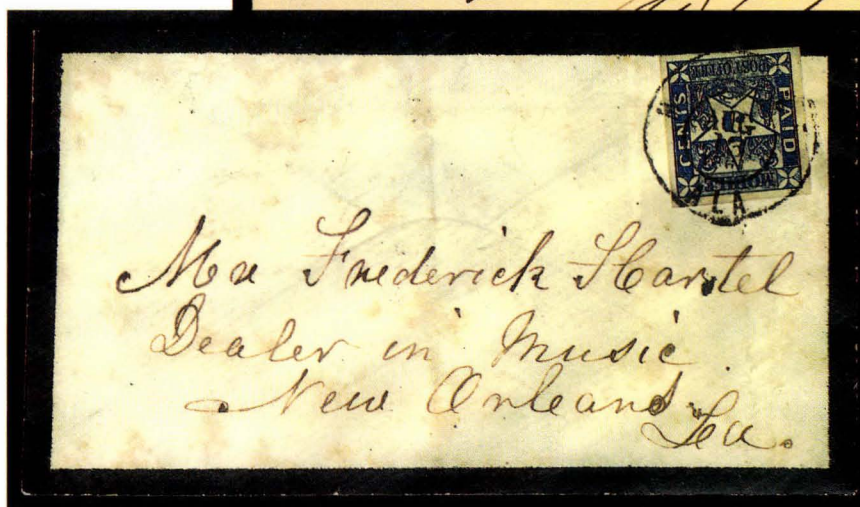 POST OFFICE
CENTS
PAID
MOBILE
AUG
ALA
Mr Frederick Hartel
Dealer in Music
New Orleans
La.